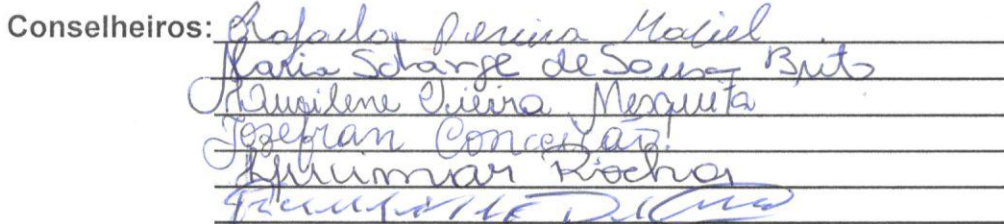 Conselheiros: Rafaela Pereira Maciel
Maria Solange de Sousa Brito
Vieira Mesquita
Josefran Conceição
Rocha